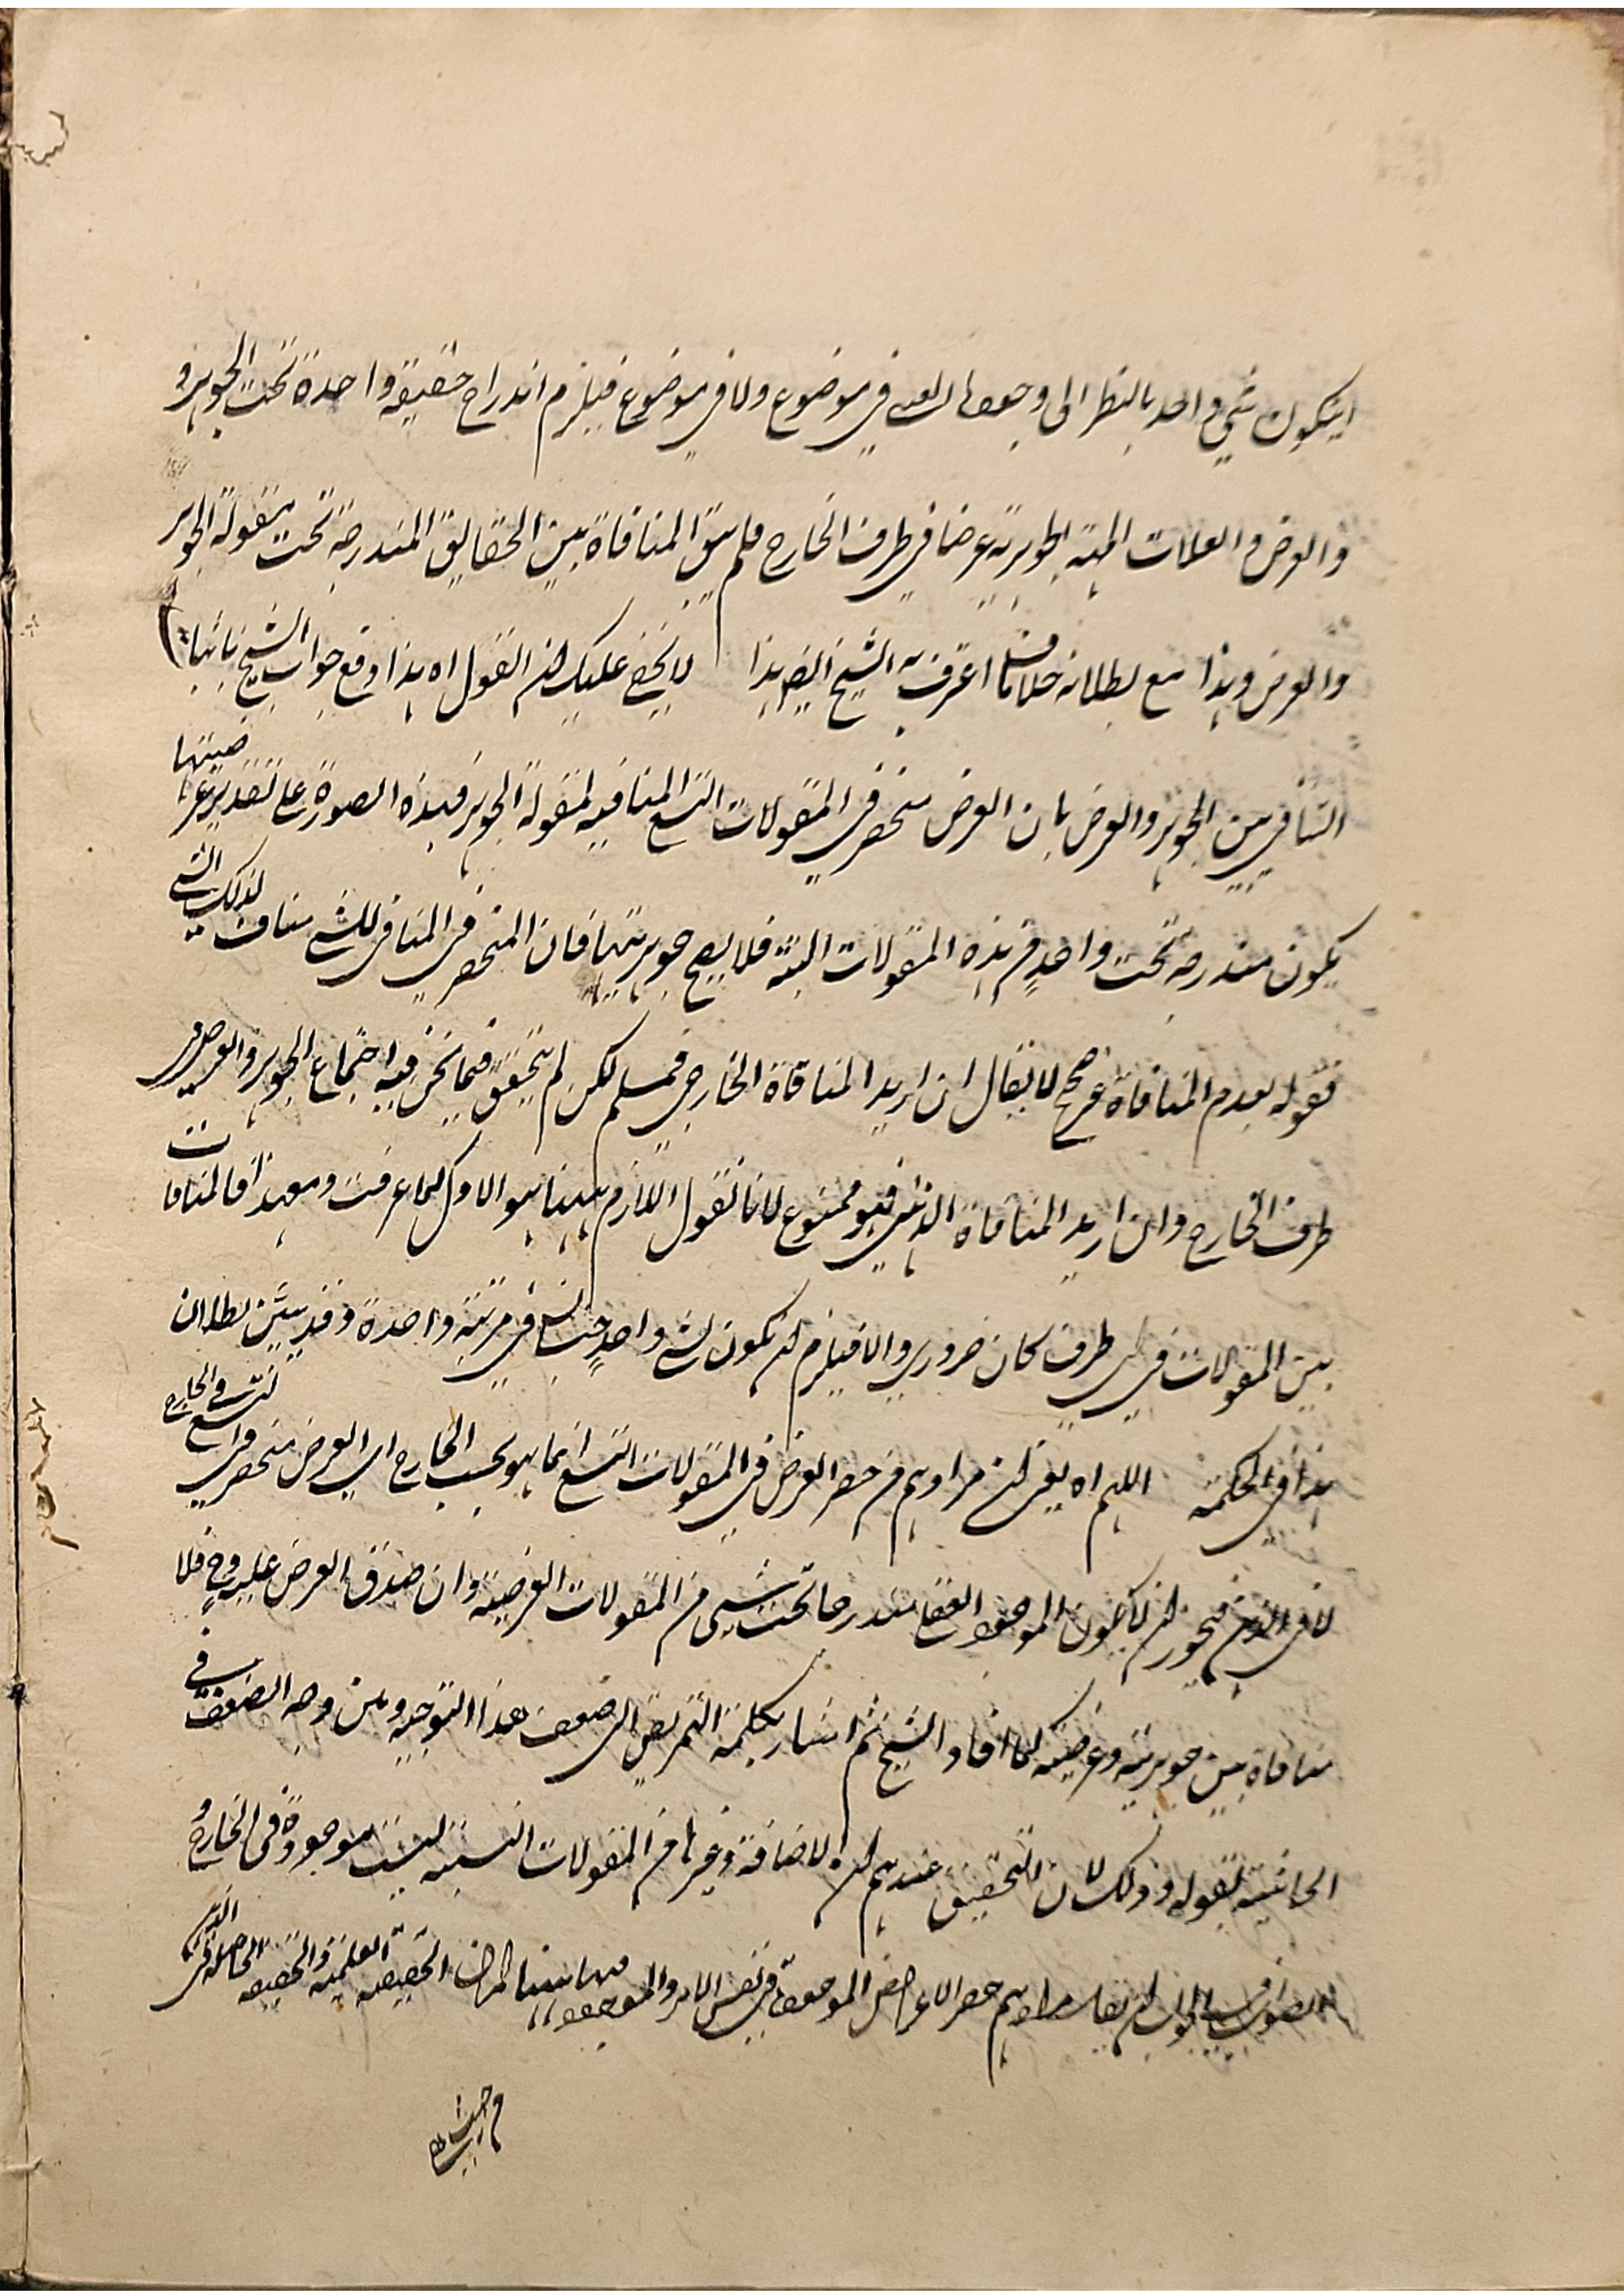 ان يكون شي واحد بالنظر الى وجوده في موضوع ولا في موضوع فيلزم اندراج حقيقة واحدة تحت الجوهر و
والعرض و الجوهرية عرضا في ظرف الخارج فلم يبق المنافاة بين الحقايق المندرجة تحت مقولة الجوهر
والعرض وهذا مع بطلانه خلاف ما اعترف به الشيخ ايضا هذا لا يخفى عليك ان القول اه هذا وقع جواب الشيخ
التنافي بين الجوهر والعرض بان العرض منحصر في المقولات التسع المنافيه لمقولة الجوهر فهذه الصورة على تقدير عرضيتها
يكون مندرجه تحت واحد من هذه المقولات البتة فلا يصح جوهريتها فان المنحصر في المنافي للشي مناف لذلك الشي
فقوله بعدم المنافاة غير صحيح لا يقال ان اريد المنافاة الخارجي فمسلم لكن لم يتحقق فيما نحن فيه اجتماع الجوهر والعرض في
ظرف الخارج وان اريد المنافاة الذهني فهو ممنوع لانا نقول اللازم ههنا هو الاول كما عرفت ومع هذا فالمنافات
بين المقولات في اي ظرف كان ضروري والا فيلزم ان يكون لشي واحد جنسان في مرتبة واحدة وقد تبين بطلان
هذا في الحكمة اللهم اه يعني ان مرادهم من حصر العرض في المقولات التسع انما هو بحسب الخارج اي العرض منحصر في التسع في الخارج
لا في الذهن فيجوز ان لا يكون الموجود العقلي مندرجا تحت شيى من المقولات العرضية وان صدق العرض عليه وح فلا
منافاة بين جوهريته وعرضيته كما افاد الشيخ ثم اشار بكلمة التمريض الى ضعف هذا التوجيه وبين وجه الضعف في
الحاشية بقوله وذلك لان التحقيق عندهم ان الاضافة وغيرها من المقولات النسبية ليست موجودة في الخارج و
الصواب في الجواب ان يقال مرادهم حصر الاعراض الموجودة في نفس الامر والموجود ههنا امران الحقيقة العلمية والحقيقة الحاصلة في الذهن